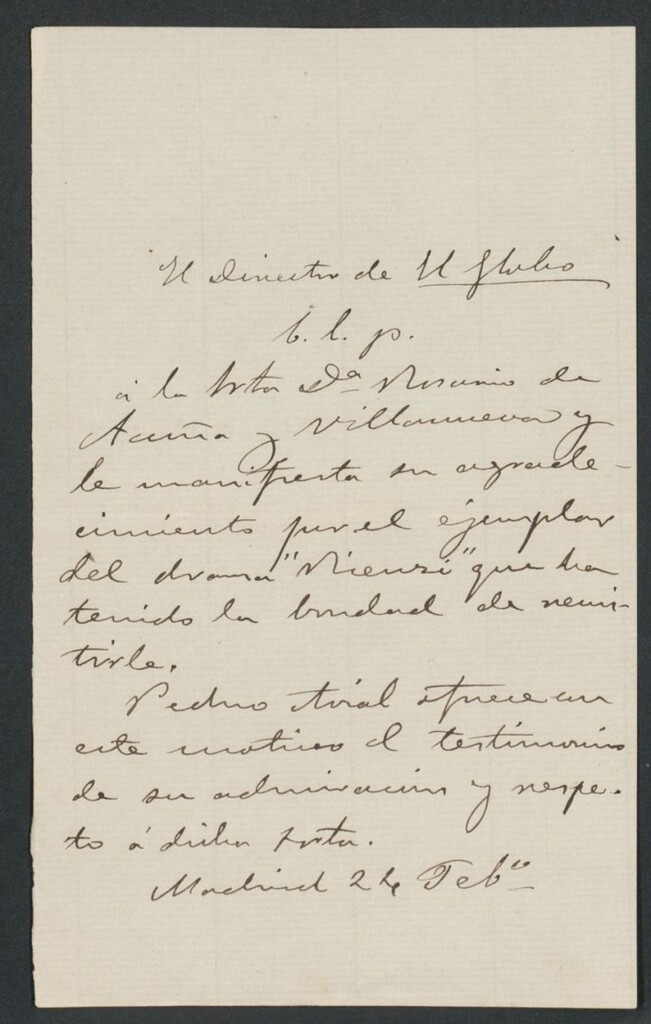 El Director de El Globo
b. l. p.
á la Srta Dª Rosario de
Acuña y Villanueva y
le manifiesta su agrade-
cimiento por el ejemplar
del drama "Rienzi" que ha
tenido la bondad de remi-
tirle.
Pedro Avial ofrece con
este motivo el testimonio
de su admiración y respe-
to á dicha Srta.
Madrid 24 Febº